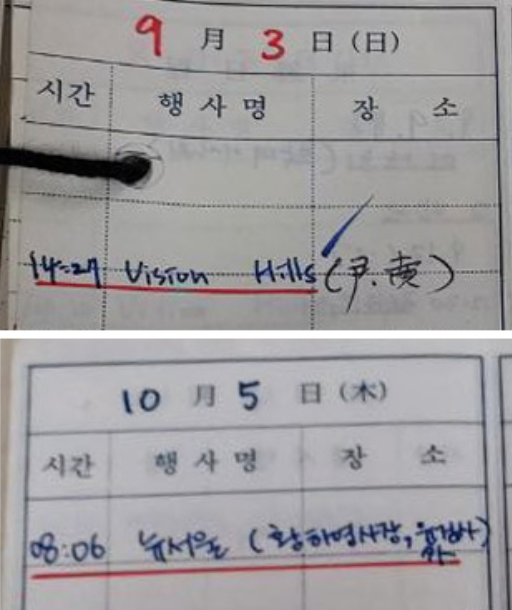 9 月 3 日 (日)
시간 행사명 장 소
14:27 Vision Hills (尹. 黃)
10 月 5 日 (木)
시간 행사명 장 소
08:06 뉴서울 (황하영사장, 윤검사)